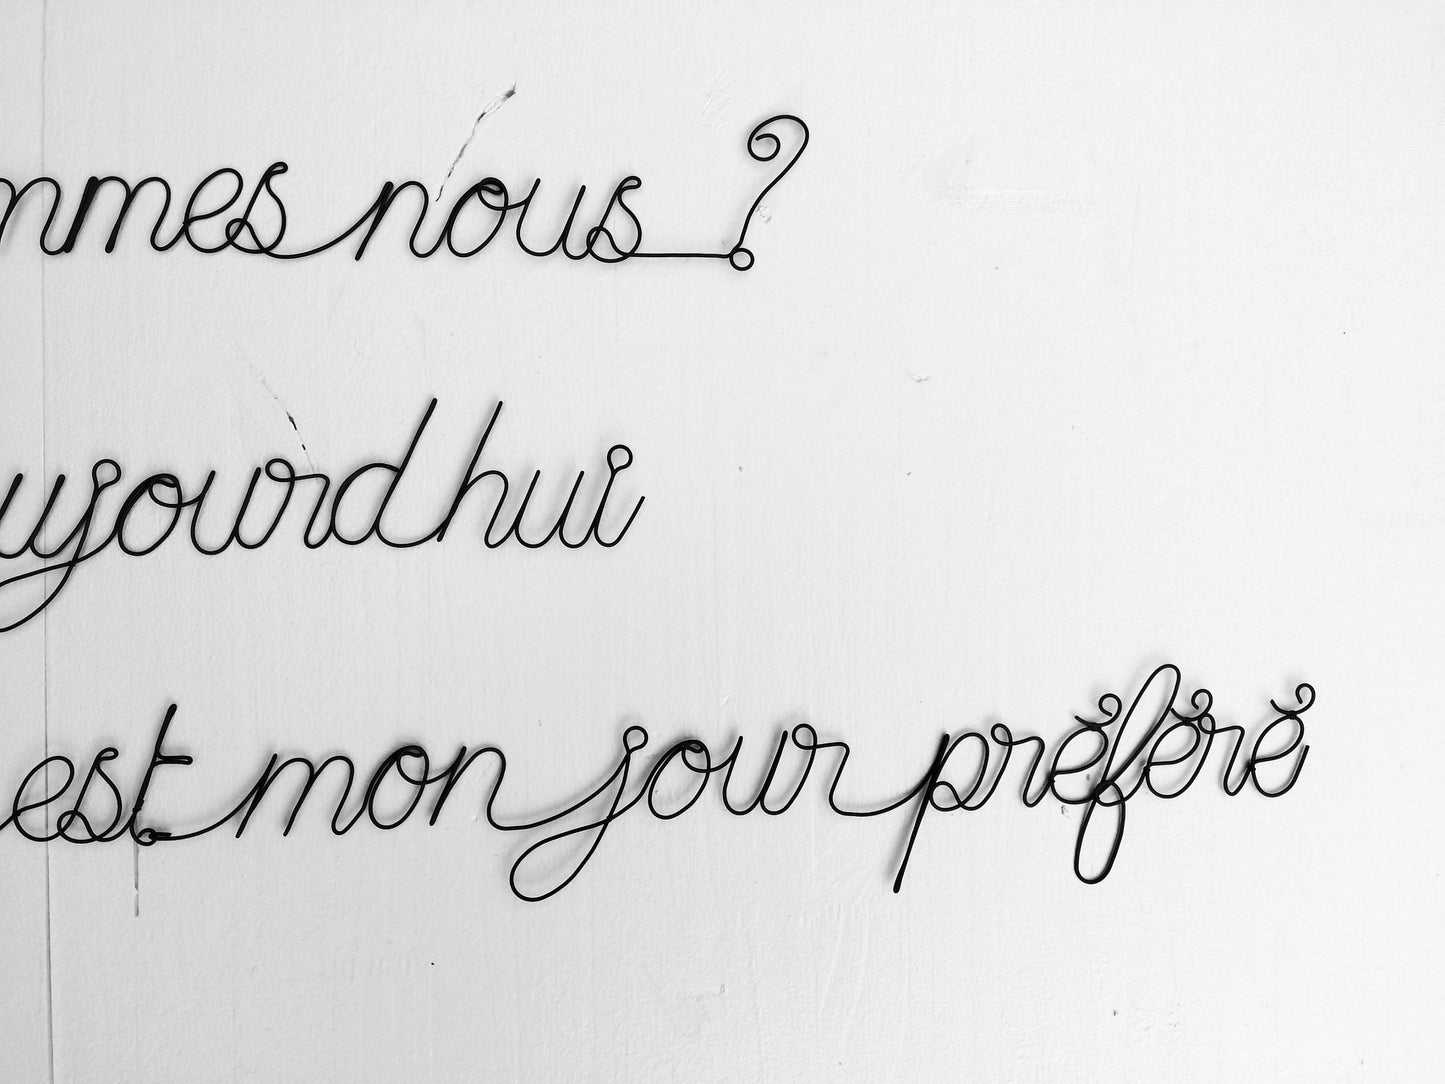 mmes nous ?
ujourdhui
est mon jour préféré